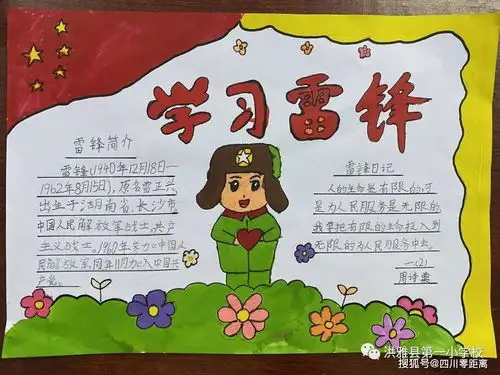 学习雷锋
雷锋简介
雷锋(1940年12月18日—
1962年8月15日),原名雷正兴
出生于湖南省、长沙市,
中国人民解放军战士,共产
主义战士。1960年参加中国人
民解放军,同年11月加入中国共
产党。
雷锋日记
人的生命是有限的,可
是为人民服务是无限的
我要把有限的生命投入到
无限的为人民服务中去。
一(2)
周诗雯
洪雅县第一小学校
搜狐号@四川零距离